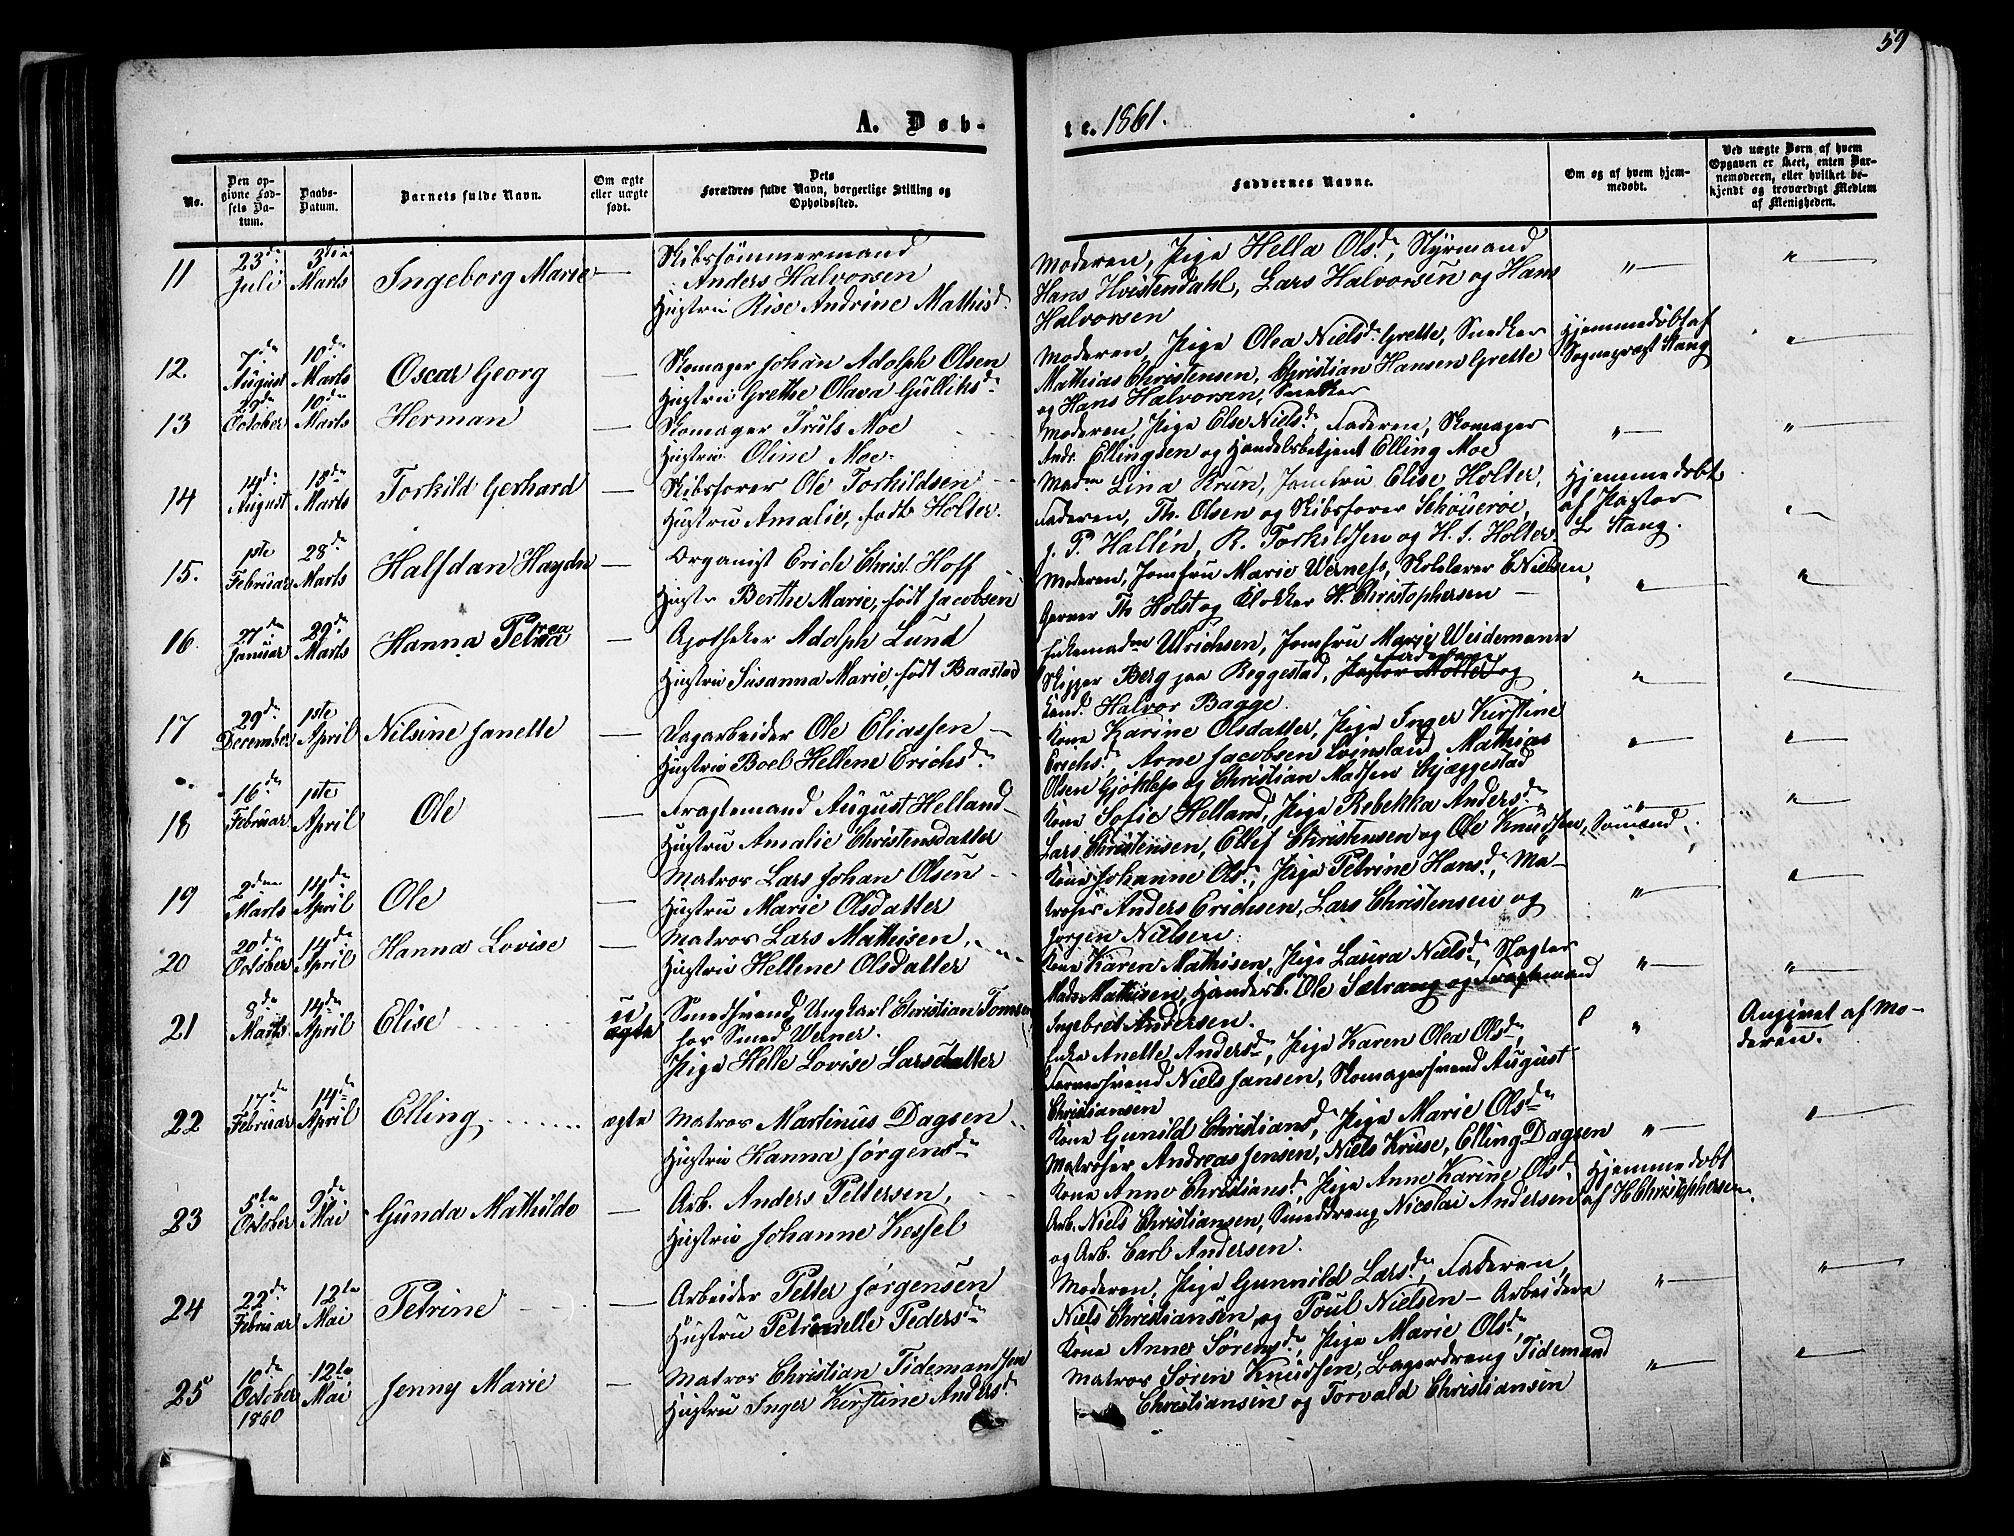 59
A. Døb-
te. 1861.
No.
Den op-
givne Fød-
sels Da-
tum.
Daabs-
Datum.
Barnets fulde Navn.
Om ægte
eller uægte
født.
Dets
Forældres fulde Navn, borgerlige Stilling og
Opholdssted.
Faddernes Navne.
Om og af hvem hjem-
medøbt.
Ved uægte Børn af hvem
Opgaven er skeet, enten Bar-
nemoderen, eller hvilket be-
kjendt og troværdigt Medlem
af Menigheden.
11
23de
Juli
3die
Marts
Ingeborg Marie
Skibstømmermand
Anders Halvorsen
Hustru Rise Andrine Mathisd.
Moderen, Pige Hella Olsd., Styrmand
Hans Hvistendahl, Lars Halvorsen og Hans
Halvorsen
12.
7de
August
10de
Marts
Oscar Georg
Skomager Johan Adolph Olsen
Hustru Grethe Olava Gulliksd.
Moderen, Pige Olea Nielsd. Grette, Snedker
Mathias Christensen, Christian Hansen Grette
og Hans Halvorsen, Snedker
Hjemmedøbt af
Sognepræst Stang
13
29de
October
10de
Marts
Herman
Skomager Truls Moe
Hustru Oline Moe
Moderen, Pige Else Nielsd., Faderen, Skomager
Andr. Ellingsen og Handelsbetjent Elling Moe
14
14de
August
13de
Marts
Torkild Gerhard
Skibsfører Ole Torkildsen
Hustru Amalie, født Holter.
Madm Lina Krun, Jomfru Elise Holter,
Faderen, Th. Olsen og Skibsfører
J. P. Hallén, R. Torkildsen og H. J. Holter
Hjemmedøbt
af Pastor
L Stang.
15.
1ste
Februar
28de
Marts
Halfdan Haydn
Organist Erich Christ. Hoff
Hustr Berthe Marie, født Jacobsen
Moderen, Jomfru Marie Werness, Skolelærer C Nielsen,
Garver Th Holst og Klokker H. Christophersen
16.
27de
Januar
29de
Marts
Hanna Petrea
Apotheker Adolph Lund
Hustru Susanna Marie, født Baastad
Enkemadm Ulrichsen, Jomfru Marie Weidemann
Skipper Berg paa Reggestad, Pastor Møller og
Cand. Halvor Bagge.
17
29de
December
1ste
April
Nilsine Janette
Dagarbeider Ole Eliassen
Hustru Boel Hellene Erichsd.
Kone Karine Olsdatter, Pige Inger Kirstine
Erichsd. Arne Jacobsen Svinsland, Mathias
Olsen Gjøklep og Christian Madsen Skjæggestad
18
16de
Februar
1ste
April
Ole
Fragtemand August Helland
Hustru Amalie Christensdatter
Kone Sofie Helland, Pige Rebekka Andersd.
Lars Christensen, Ellef Christensen og Ole Knudsen, Sømænd
19
2den
Marts
14de
April
Ole
Matros Lars Johan Olsen
Hustru Marie Olsdatter
Kone Johanne Olsd., Pige Petrine Hansd., Ma-
troser Anders Erichsen, Lars Christensen og
Jørgen Nielsen.
20
20de
October
14de
April
Hanna Lovise
Matros Lars Mathisen,
Hustru Hellene Olsdatter
Kone Karen Mathisen, Pige Laura Nielsd., Slagter
Mads Mathisen, Handelsb. Ole Sætrang og Fragtemand
Ingebret Andersen.
21
8de
Marts
14de
April
Elise
u
ægte
Smedsvend, Ungkarl Christian Tomsen
hos Smed Werner.
Pige Helle Lovise Larsdatter
Enke Anette Andersd., Pige Karen Olea Olsd.,
Farversvend Niels Jansen, Skomagersvend August
Christiansen
Angivet af Mo-
deren.
22
17de
Februar
14de
April
Elling
ægte
Matros Martinus Dagsen
Hustru Hanna Jørgensd.
Kone Gunild Christiansd., Pige Marie Olsd.
Matroser Andreas Jensen, Niels Kruse, Elling Dagsen
23
5te
October
9de
Mai
Gunda Mathilde
Arb. Anders Pettersen,
Hustru Johanne Kessel
Kone Anne Christiansd., Pige Anne Karine Olsd.
Arb. Niels Christiansen, Smeddreng Nicolai Andersen
og Arb. Carl Andersen.
Hjemmedøbt
af H Christophersen.
24
22de
Februar
12te
Mai
Petrine
Arbeider Petter Jørgensen
Hustru Petrinelle Pedersd.
Moderen, Pige Gunnild Larsd., Faderen,
Niels Christiansen, og Poul Nielsen - Arbeidere
25
10de
October
1860
12te
Mai
Jenny Marie
Matros Christian Tidemandsen
Hustru Inger Kirstine Andersd.
Kone Anne Sørensd., Pige Marie Olsd.
Matros Søren Knudsen, Bagerdreng Tidemand
Christiansen og Torvald Christiansen